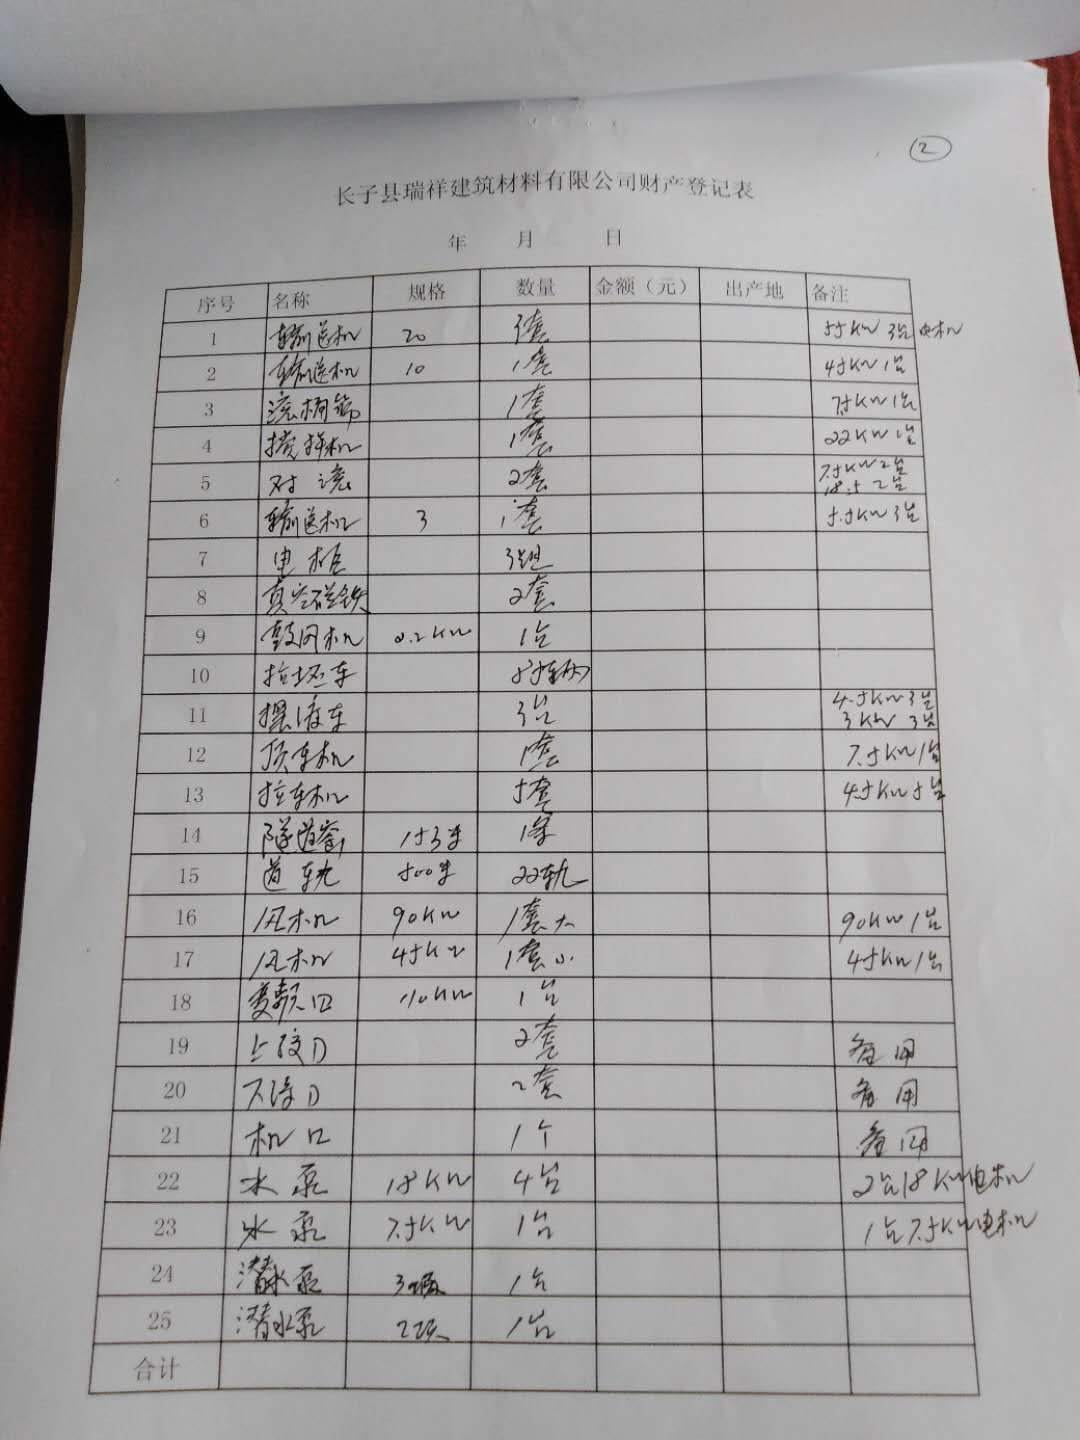 ②
长子县瑞祥建筑材料有限公司财产登记表
年 月 日
序号 名称 规格 数量 金额（元） 出产地 备注
1 输送机 20 3套 55KW 3台 电机
2 输送机 10 1套 45KW 1台
3 滚桶筛 1套 75KW 1台
4 搅拌机 1套 22KW 1台
5 对滚 2套 7.5KW 2台
18.5 2台
6 输送机 3 1套 5.5KW 3台
7 电柜 3组
8 真空磁铁 2套
9 鼓风机 0.2KW 1台
10 拉坯车 辆
11 摆渡车 3台 4.5KW 3台
3KW 3台
12 顶车机 1套 7.5KW 1台
13 拉车机 5套 45KW 5台
14 隧道窑 153米 1条
15 道轨 500米 22轨
16 风机 90KW 1套大 90KW 1台
17 风机 45KW 1套小 45KW 1台
18 变频 110KW 1台
19 上 2套 备用
20 下 2套 备用
21 机口 1个 备用
22 水泵 18KW 4台 2台18KW电机
23 水泵 7.5KW 1台 1台7.5KW电机
24 潜水泵 1台
25 潜水泵 1台
合计